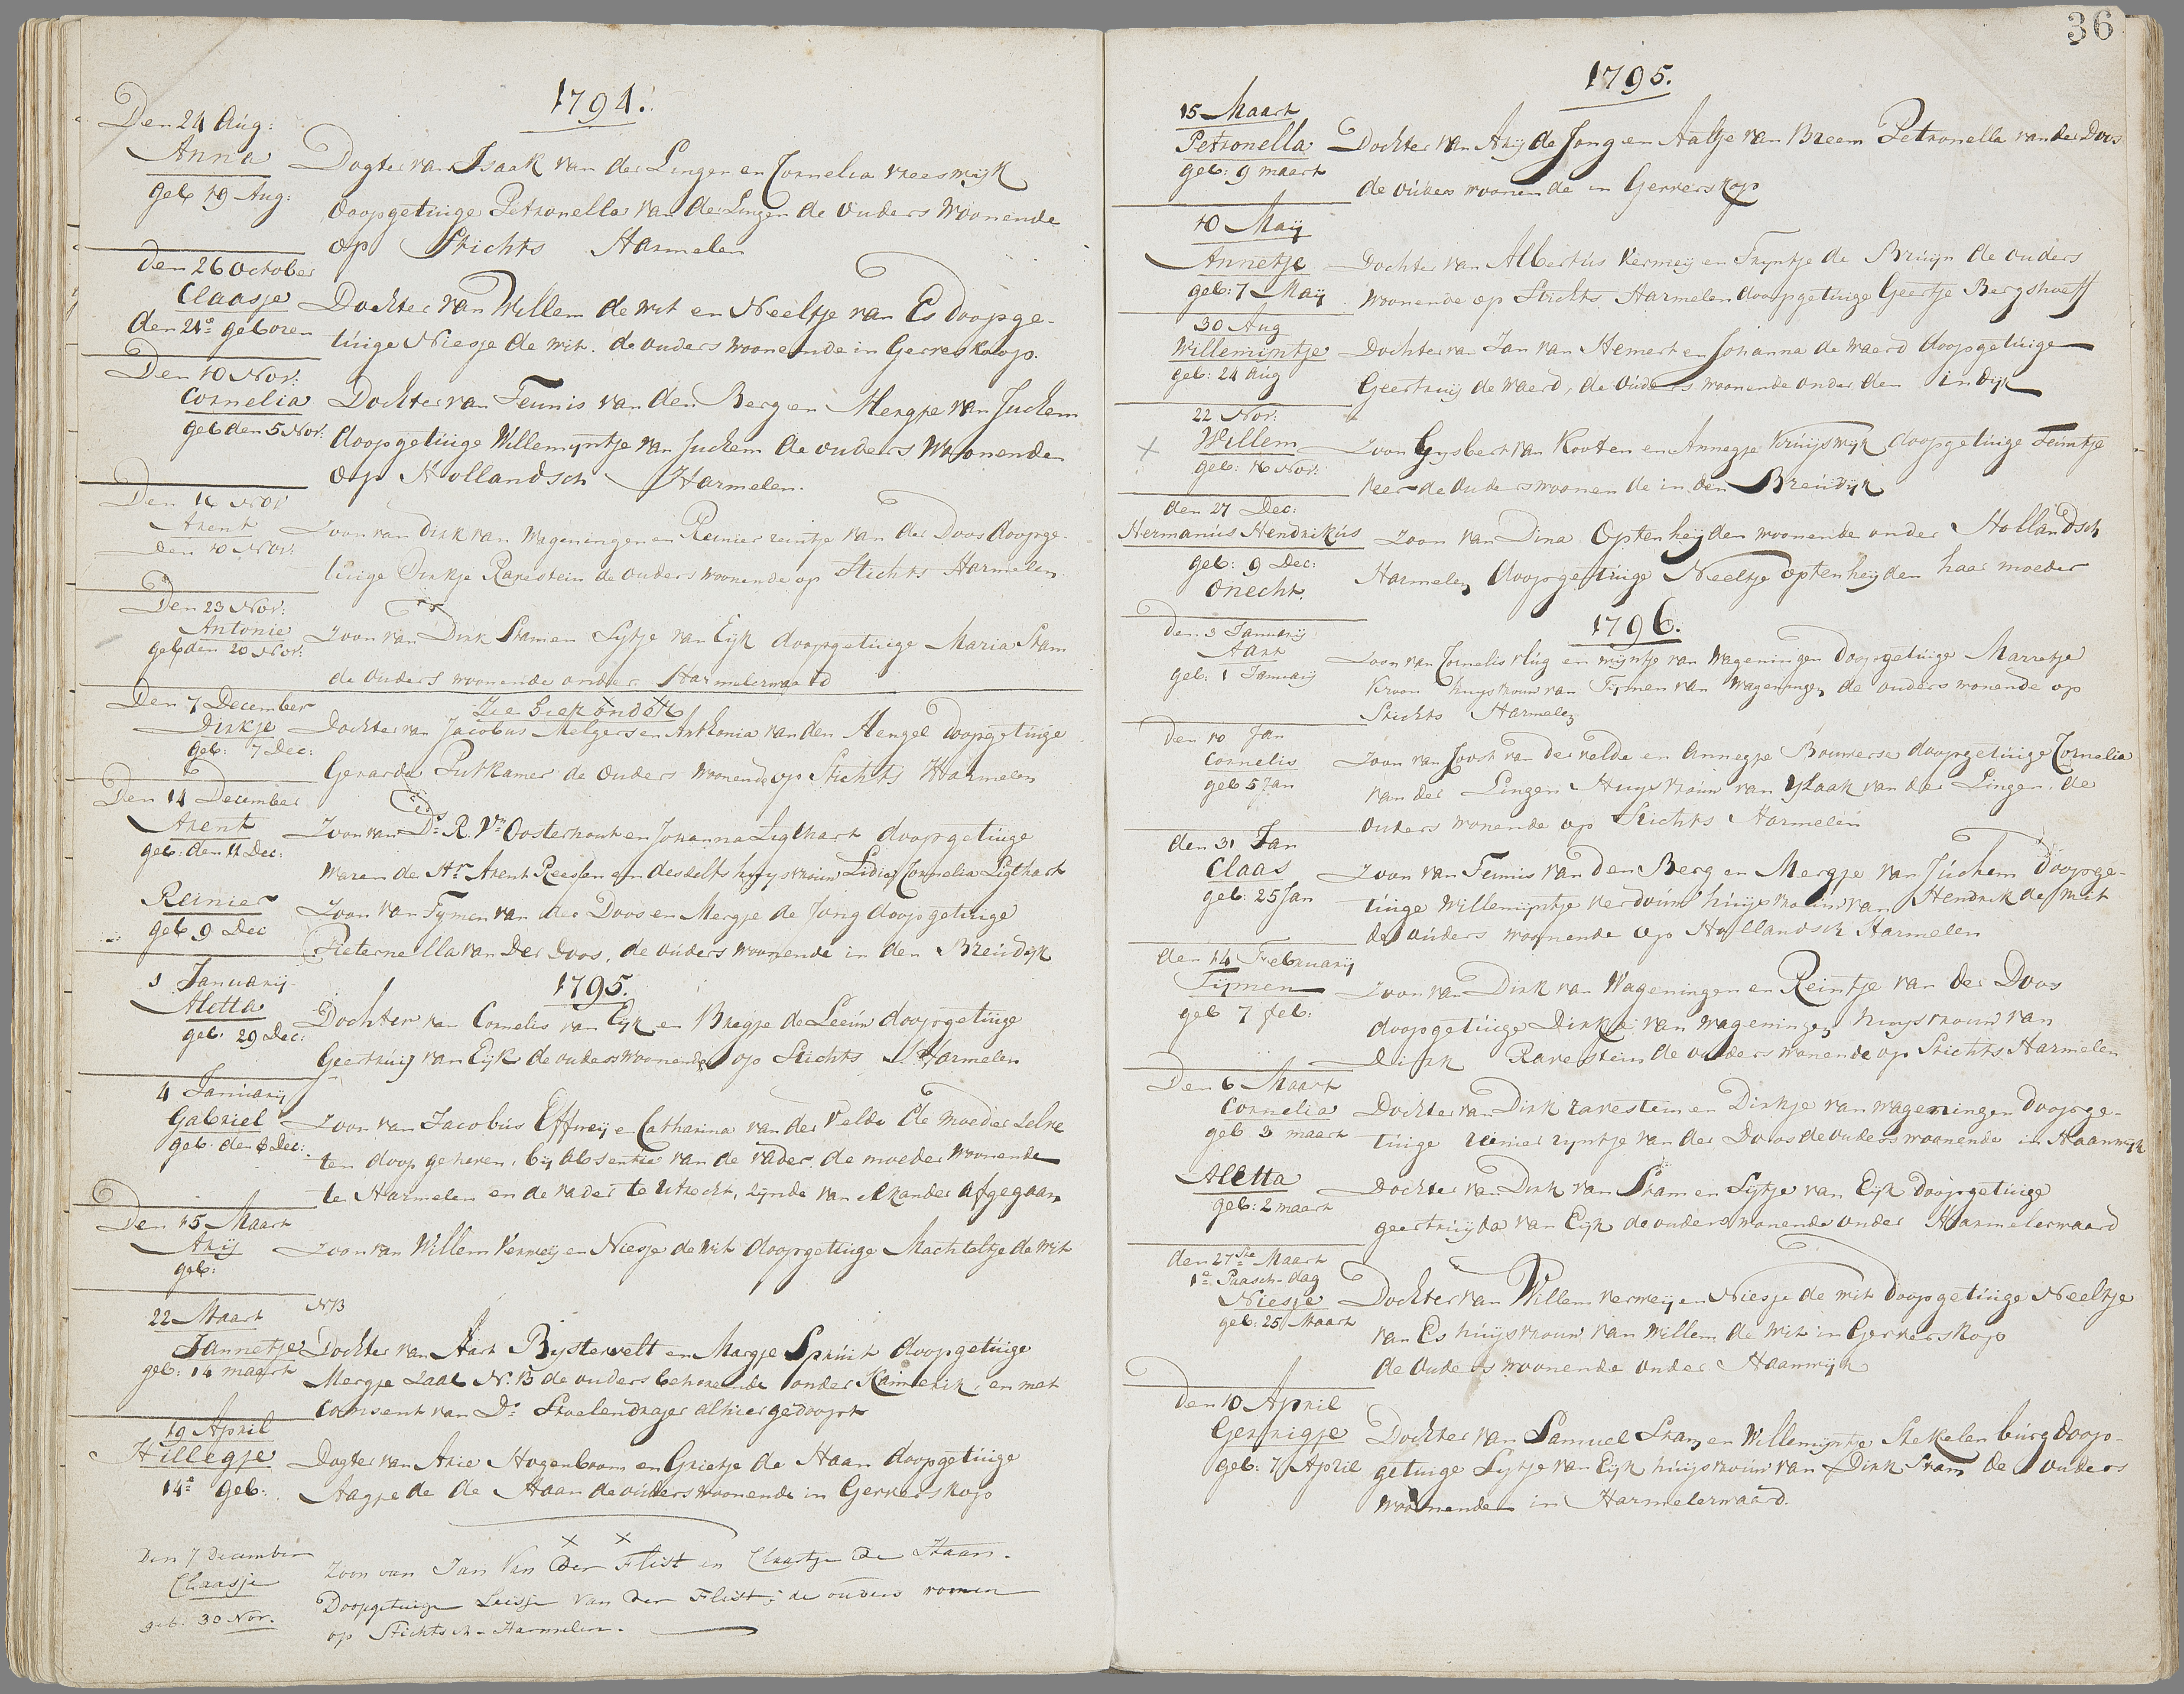 1794.
Den 24 Aug:
Anna
geb 19 Aug:
Dogter van Isaak van der Lingen en Cornelia vreeswijk
doopgetuige Petronella van der Lingen de ouders woonende
op Stichts Harmelen
den 26 October
Claasje
den 21e geboren
Dochter van Willem de wit en Neeltje van Es doopge-
tuige Niesje de wit. de ouders woonende in Gerverskoop.
Den 10 Nov:
Cornelia
geb den 5 Nov:
Dochter van Teunis van den Berg en Mergje van Juchem
doopgetuige Willemyntje van Juchem de ouders woonende
op Hollandsch Harmelen.
Den 16 Nov
Arent
den 10 Nov:
Zoon van Dirk van Wageningen en Reinier reintje van der Doos doopge-
tuige Dirkje Ravestein de ouders woonende op Stichts Harmelen.
Den 23 Nov:
Antonie
geb den 20 Nov:
Zoon van Dirk Stam en Sytje van Eijk doopgetuige Maria Stam
de ouders woonende onder Harmelerwaard
Zie hier onder
Den 7 December
Dirkje
geb: 7 Dec:
Dochter van Jacobus Melgers en Anthonia van den Hengel doopgetuige
Gerarda Putkamer de ouders woonende op Stichts Harmelen
Den 14 December
Arent
geb: den 11 Dec:
Zoon van Ds. R. Vn Oosterhout en Johanna Ligthart doopgetuige
waren de Hr Arent Reessen en desselfs huysvrouw Lidia Cornelia Ligthart
Reinier
geb 9 Dec
Zoon van Tymen van der Doos en Mergje de Jong doopgetuige
Pieternella van Der Doos, de ouders woonende in den Breudijk
1795.
1 Januarij
Aletta
geb. 29 Dec:
Dochter van Cornelis van Eijk en Bregje de Leeuw doopgetuige
Geertruij van Eijk de ouders woonende op Stichts Harmelen
4 Januarij
Gabriel
geb. den 8 Dec:
Zoon van Jacobus Effmeij en Catharina van der Velde de moeder zelve
ten doop geheven, bij absentie van de vader, de moeder woonende
te Harmelen en de vader te Utrecht, zijnde van elkander afgegaan
Den 15 Maart
Arij
geb:
Zoon van Willem Vermeij en Niesje de Wit doopgetuige Machteltje de wit
22 Maart
NB
Jannetje
geb: 14 maart
Dochter van Aart Bijstervelt en Margje Spruit doopgetuige
Mergje Zaal N.B de ouders behorende onder Kamerik, en met
Consent van Ds. Stoelendrager alhier gedoopt
19 April
Hillegje
14e geb:
Dogter van Arie Hogenboom en Grietje de Haan doopgetuige
Aagje de de Haan de ouders woonende in Gerverskop
Den 7 December
Claasje
geb. 30 Nov.
x x
Zoon van Jan Van der Flist en Claartje de Haan.
Doopgetuige Leisje Van der Flist; de ouders woonen
op Stichtsch-Harmelen.
36
1795.
15 Maart
Petronella
geb: 9 maart
Dochter van Arij de Jong en Aaltje van Breem Petronella van der Doos
de ouders woonende in Gerverskop
10 Maij
Annetje
geb: 7 Maij
Dochter van Albertus Vermeij en Tryntje de Bruijn de ouders
woonende op Stichts Harmelen doopgetuige Geertje Bergshoeff
30 Aug
Willemijntje
geb: 24 Aug
Dochter van Jan van Hemert en Johanna de Waerd doopgetuige
Geertruij de Waerd, de ouders woonende onder den indijk
22 Nov:
x
Willem
geb: 16 Nov:
Zoon Gysbert van Kooten en Annegje Kruijswijk doopgetuige Teuntje
Veer de ouders woonende in den Breudijk
den 27 Dec:
Hermanus Hendrikus
geb: 9 Dec:
Onecht.
Zoon van Dina Optenheijden woonende onder Hollandsch
Harmelen doopgetuige Neeltje optenheijden haar moeder
1796.
Den 3 Januarij
Aart
geb: 1 Januarij
Zoon van Cornelis vlug en mijntje van Wageningen doopgetuige Marretje
Kroon huysvrouw van Tijmen van Wageningen de ouders wonende op
Stichts Harmelen
Den 10 Jan
Cornelis
geb 5 Jan
Zoon van Joost van der velde en Annegje Bouwerse doopgetuige Cornelia
van der Lingen Huysvrouw van ysaak van der Lingen. de
ouders wonende op Stichts Harmelen
den 31 Jan
Claas
geb: 25 Jan
Zoon van Teunis van den Berg en Mergje van Juchem doopge-
tuige Willemijntje verdouw huijsvrouw van Hendrik de Smit
de ouders woonende op Hollandsch Harmelen
den 14 Februarij
Tijmen
geb 7 feb:
Zoon van Dirk van Wageningen en Reintje van der Doos
doopgetuige Dirkje van wageningen huysvrouw van
Dirk Ravestein de ouders wonende op Stichts Harmelen
Den 6 Maart
Cornelia
geb 3 maart
Dochter van Dirk ravestein en Dirkje van wageningen doopge-
tuige reinier ryntje van der Doos de ouders woonende in Haanwijk
Aletta
geb: 2 maart
Dochter van Dirk van Stam en Sijtje van Eijk doopgetuige
geertruijda van Eijk de ouders wonende onder Harmelerwaard
den 27ste Maart
1e Paasch-dag
Niesje
geb: 25 Maart
Dochter van Willem vermeij en Niesje de wit doopgetuige Neeltje
van Es huijsvrouw van willem de wit in Gerverskop
de ouders woonende onder Haanwijk
den 10 April
Gerrigje
geb: 7 April
Dochter van Samuel Stam en Willemijntje Stekelenburg doop-
getuige Sijtje van Eijk huijsvrouw van Dirk Stam de ouders
woonende in Harmelerwaard.